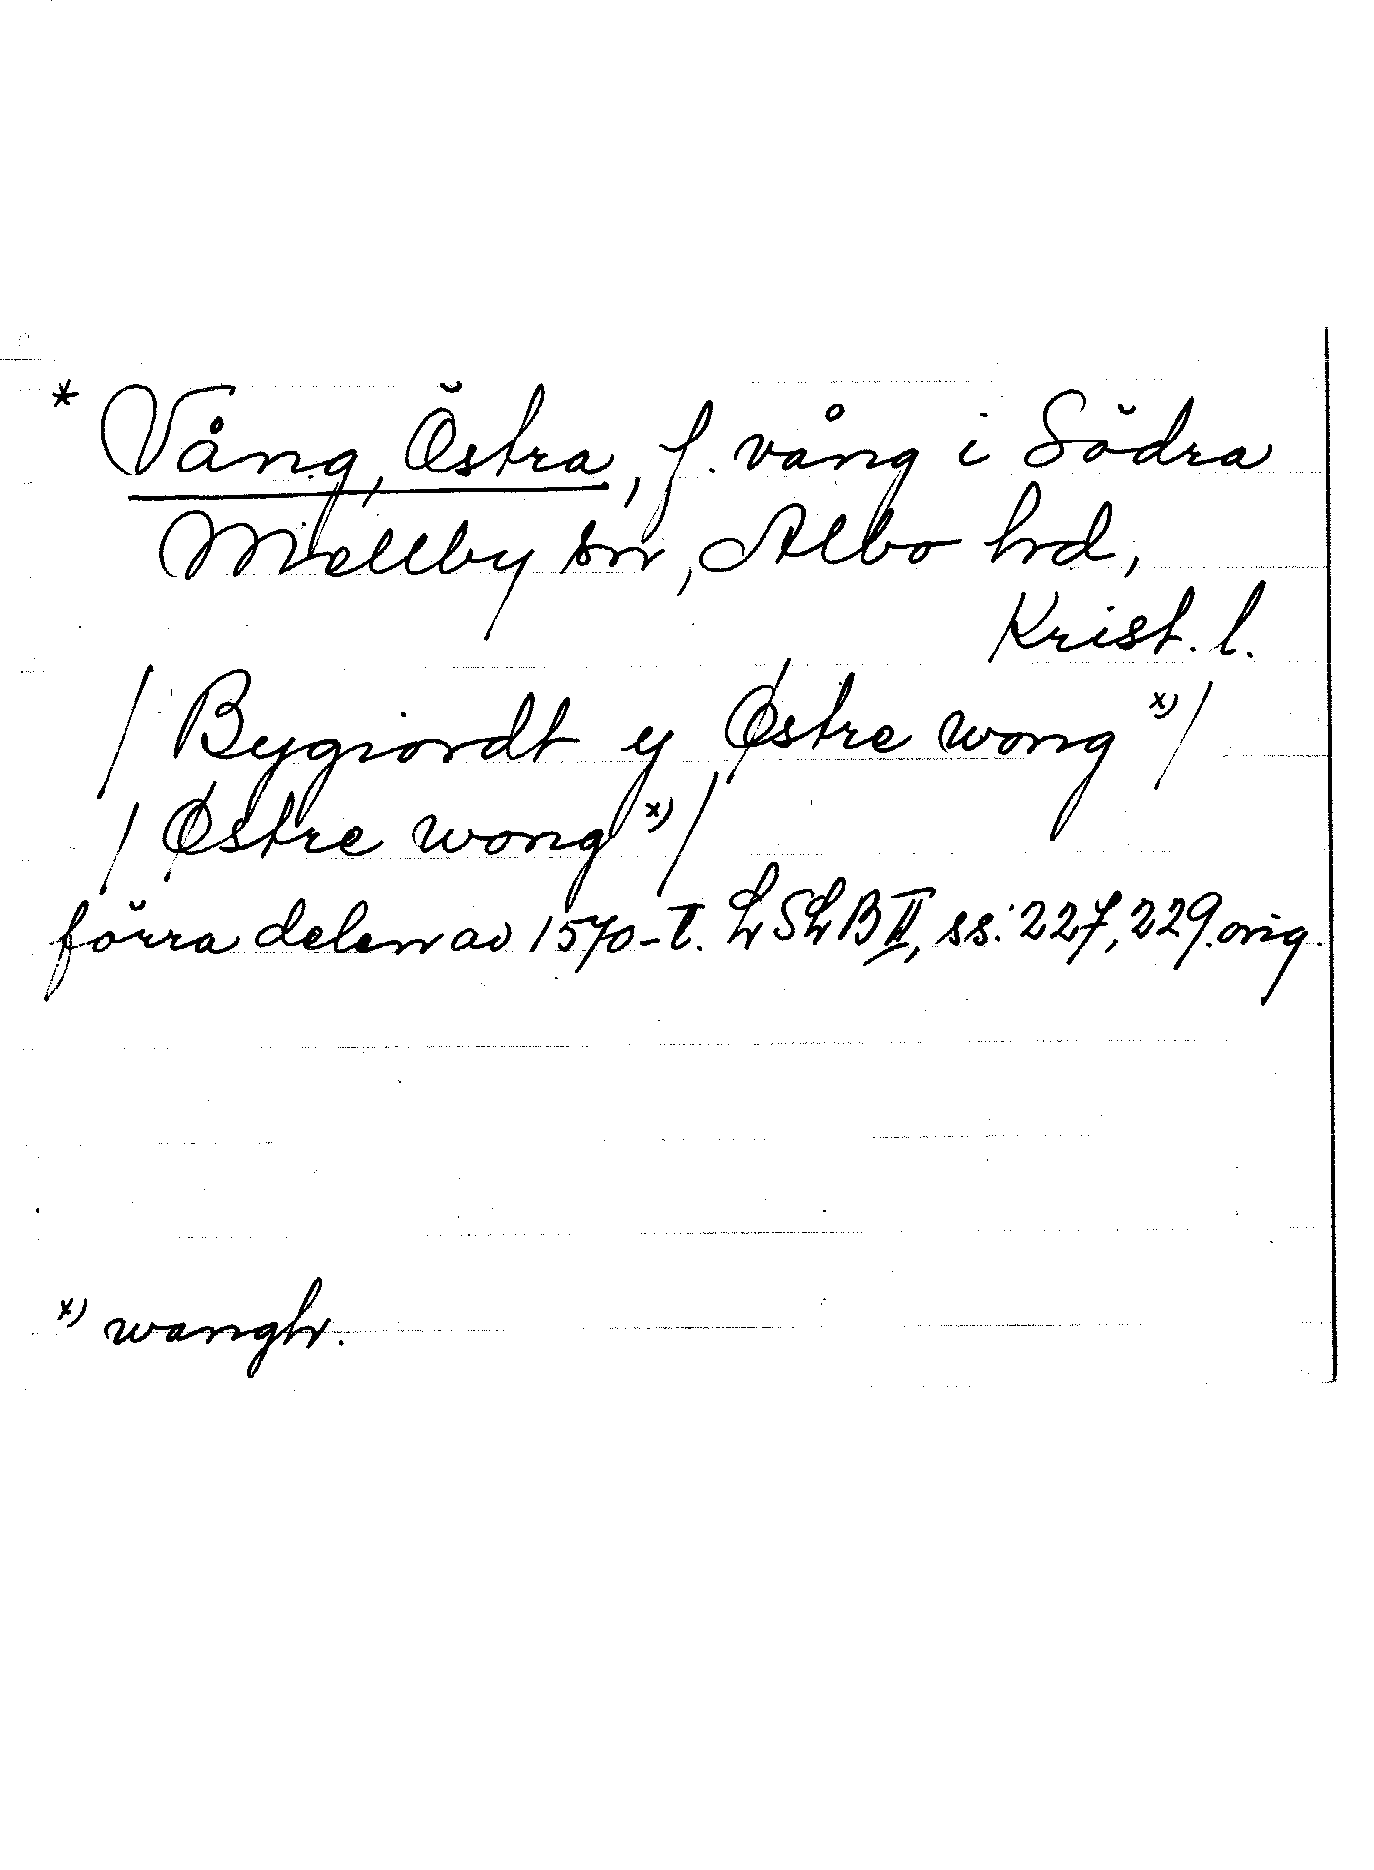 * Vång, Östra, f. vång i Södra
Mellby sn, Albo hd,
Krist. l.
/ Bygiordt y Østre wong x) /
/ Østre wong x) /
förra delen av 1570-t. LSLB II, ss. 227, 229. orig.
x) wangh.